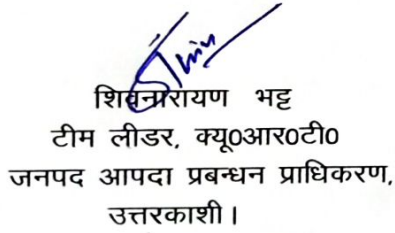 शिवनारायण भट्ट
टीम लीडर, क्यू0आर0टी0
जनपद आपदा प्रबन्धन प्राधिकरण,
उत्तरकाशी।